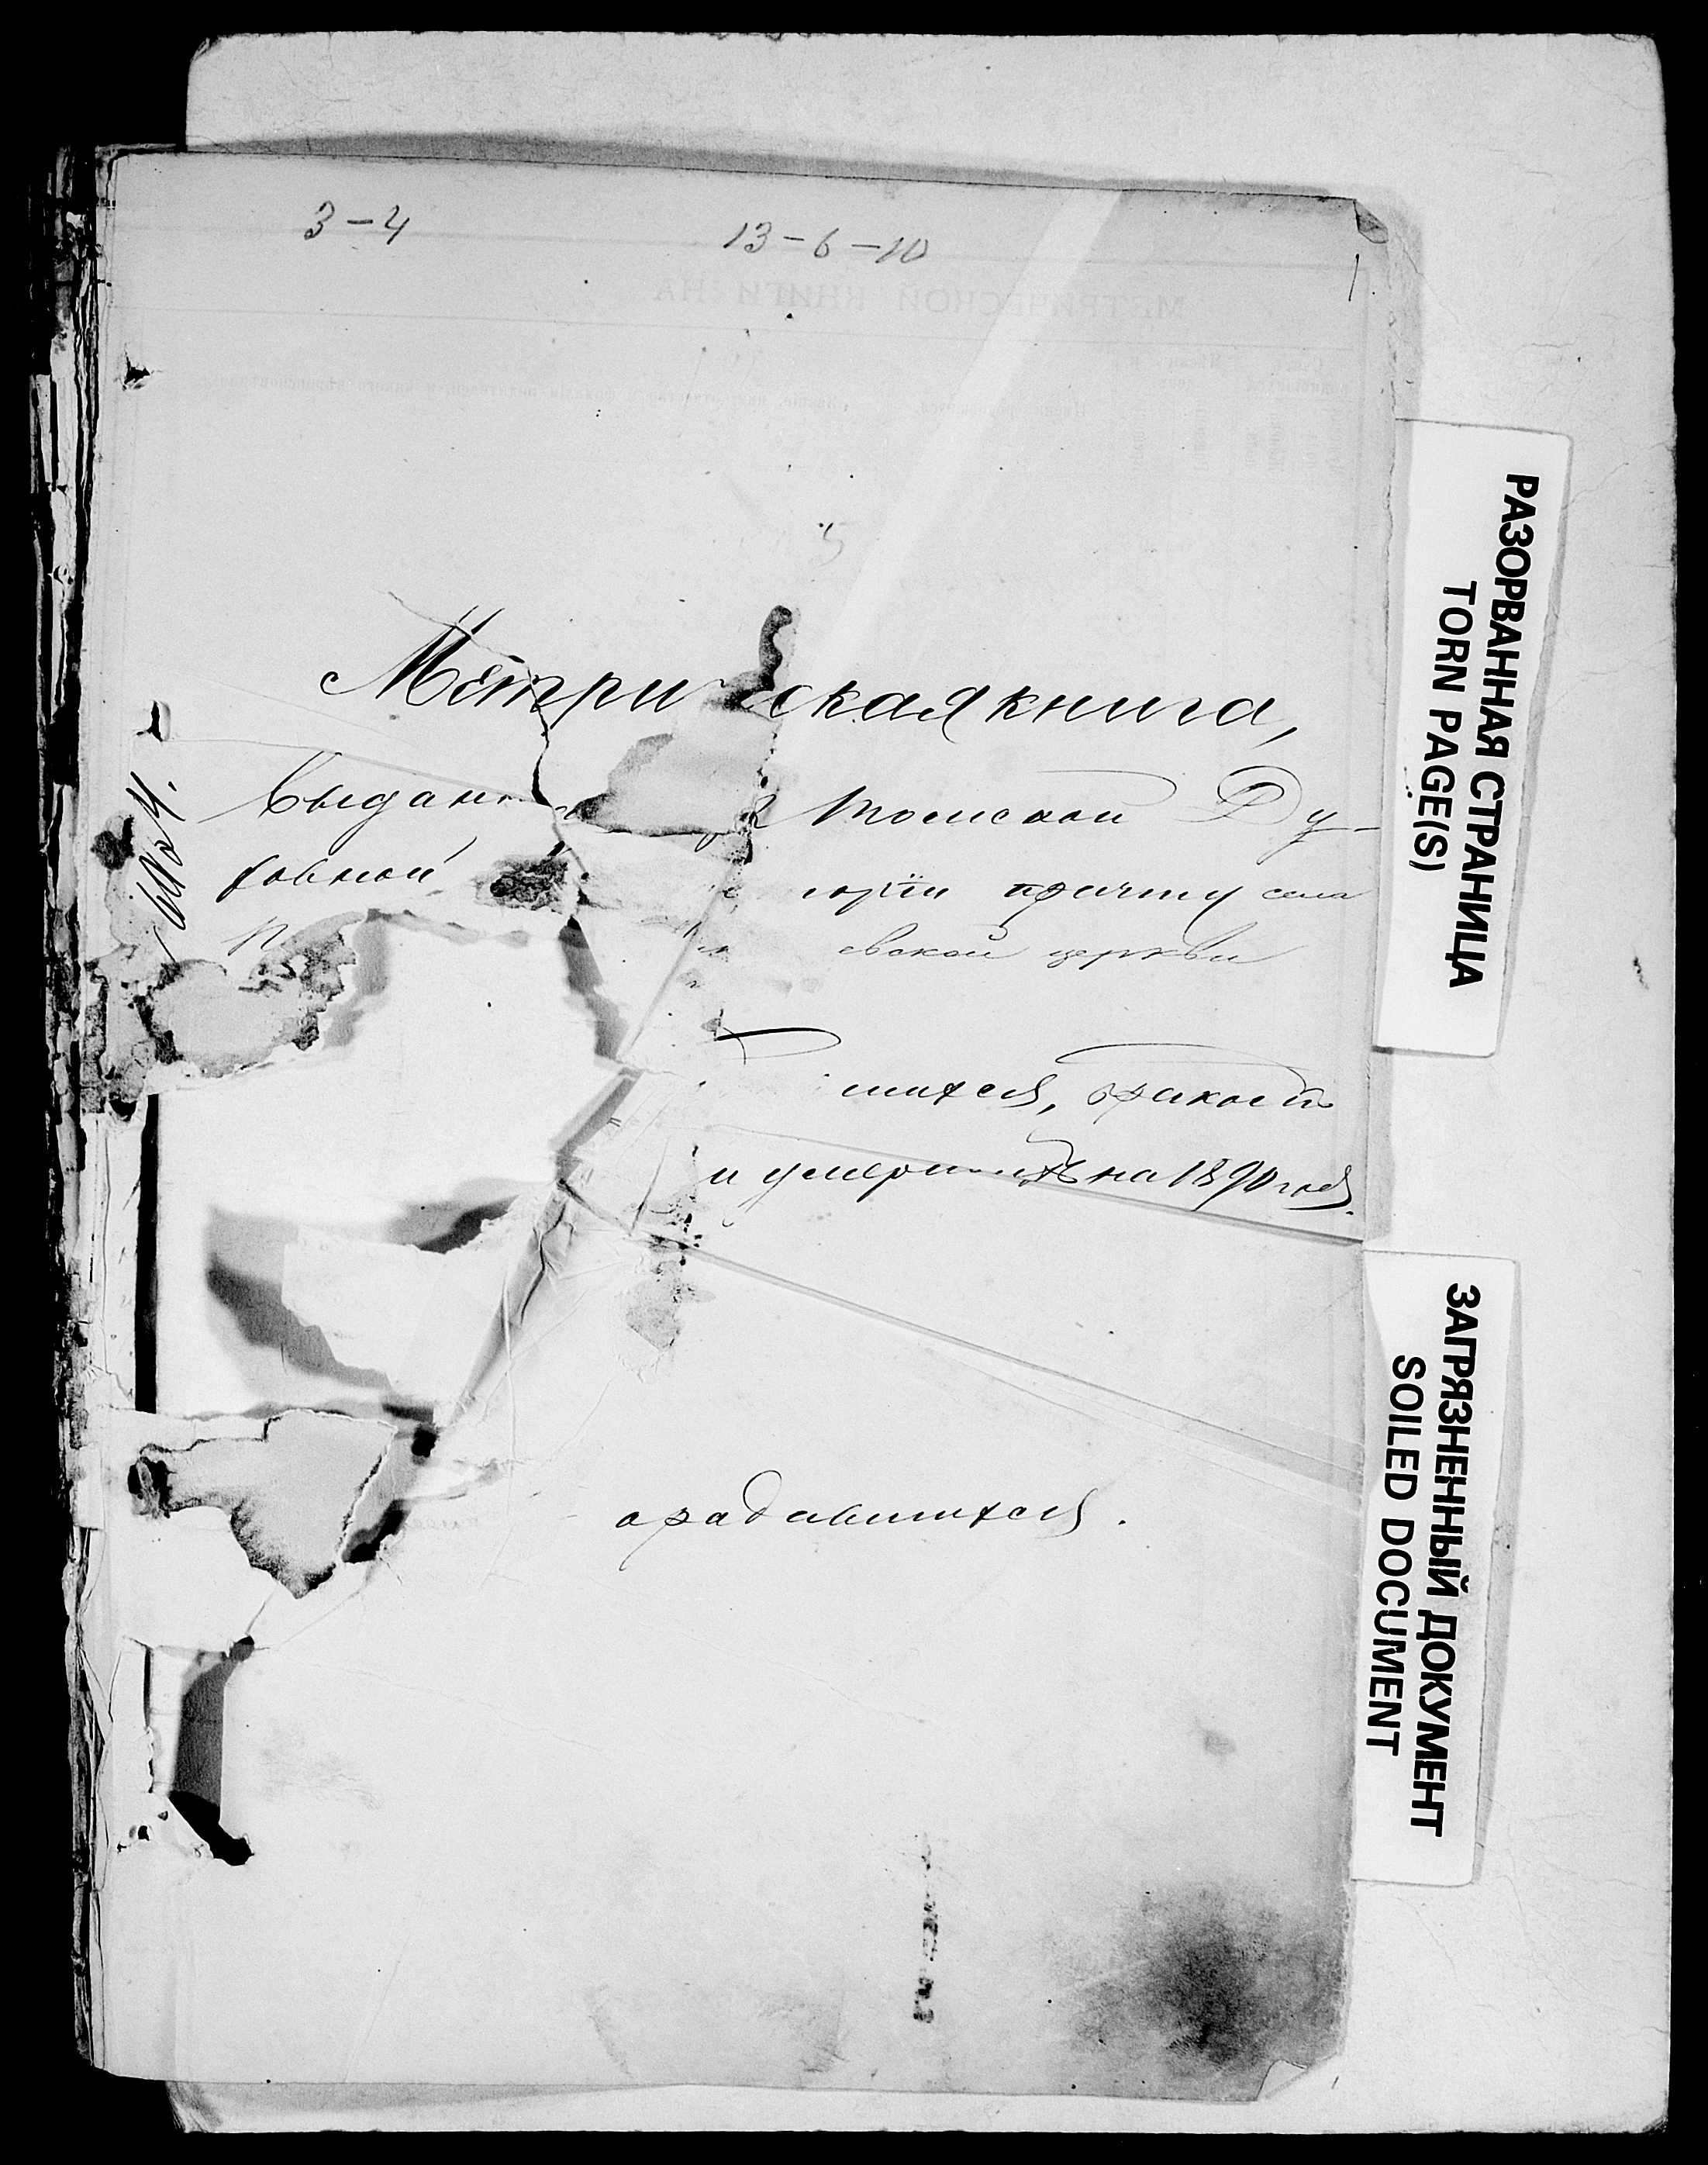 3-4 13-6-10
МЕТРИЧЕСКОЙ КНИГИ НА
Метри ская книга,
Выдан Томской Ду-
ховной торіи причту села
евской церкви
шихся, бракосо
и умерших на 1890 годъ.
о родившихся.
РАЗОРВАННАЯ СТРАНИЦА
TORN PAGE(S)
ЗАГРЯЗНЕННЫЙ ДОКУМЕНТ
SOILED DOCUMENT